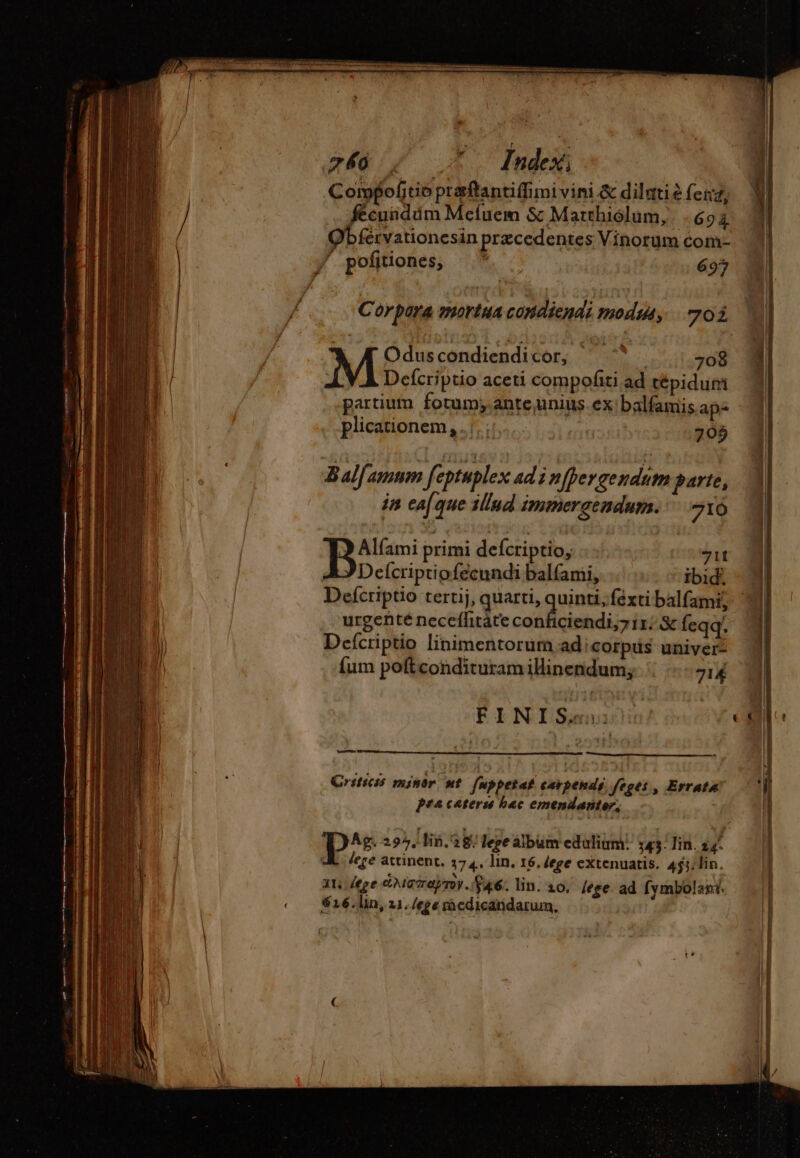 760 Index,
Compoſitio præſtantiſſimi vini & diluti è
ſecundùm Meſuem & Matthiolum, 694
Obſervationes in præcedentes Vinorum com-
poſitiones, 697
Corpora mortua condiendi modus, 702
MOdus condiendi cor, 708
Deſcriptio aceti compoſiti ad tepidum
partium fotum, ante unius ex balſamis ap-
plicationem, 709
Balſamum ſeptuplex ad inſpergendum parte,
in eaſque illud immergendum. 710
BAlſami primi deſcriptio, 711
Deſcriptio ſecundi balſami, ibid.
Deſcriptio tertij, quarti, quinti, ſexti balſami,
urgente neceſſitate conficiendi, 711. & ſeqq.
Deſcriptio linimentorum ad corpus univer-
ſum poſt condituram illinendum, 714
FINIS.
Criticis minor ut ſuppetat carpendi ſeges, Errata
præ cæteris hæc emendantor.
PAg. 295. lin. 28. lege album edulium. 343. lin. 24.
lege attinent. 374. lin. 16. lege extenuatis. lin.
21. lege 546. lin. 20. lege ad ſymbolam.
616. lin. 21. lege medicandarum.